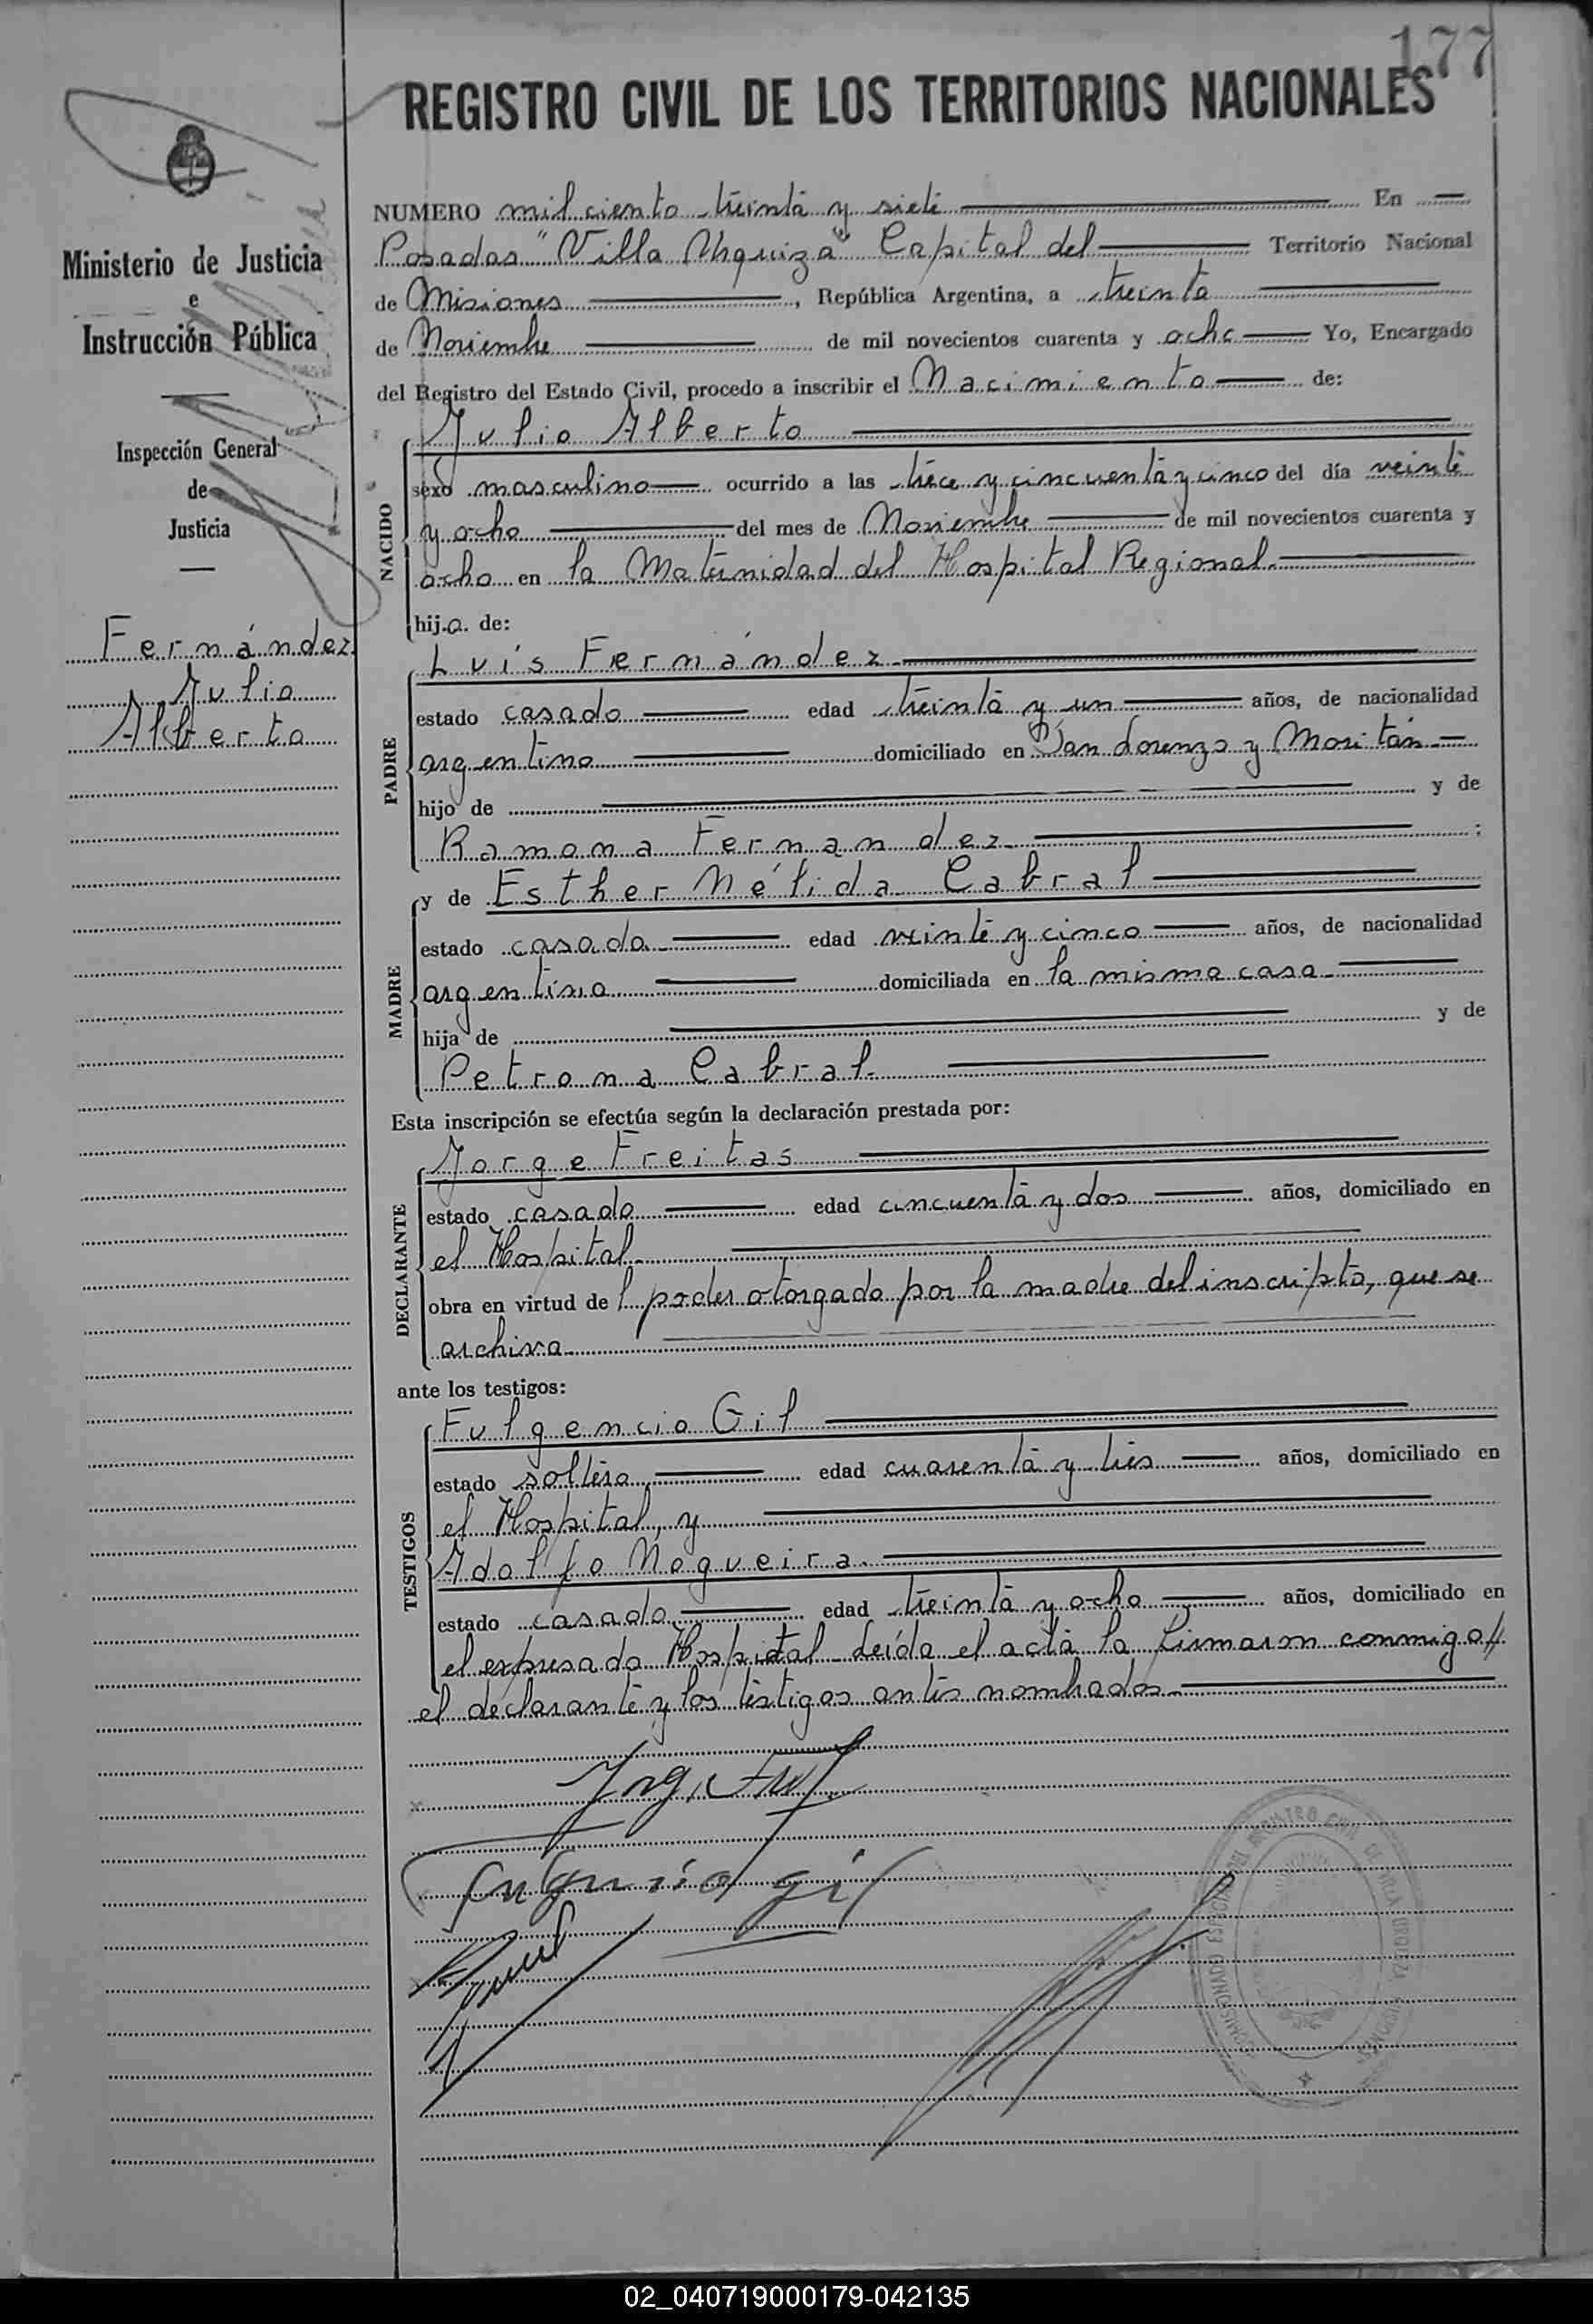 177
REGISTRO CIVIL DE LOS TERRITORIOS NACIONALES
Ministerio de Justicia
e
Instrucción Pública
Inspección General
de
Justicia
Fernández
Julio
Alberto
NUMERO mil ciento treinta y siete En
Posadas "Villa Urquiza" Capital del Territorio Nacional
de Misiones, República Argentina, a treinta
de Noviembre de mil novecientos cuarenta y ocho Yo, Encargado
del Registro del Estado Civil, procedo a inscribir el Nacimiento de:
NACIDO
Julio Alberto
sexo masculino ocurrido a las trece y cincuenta y cinco del día veinte
y ocho del mes de Noviembre de mil novecientos cuarenta y
ocho en la Maternidad del Hospital Regional.
hijo de:
PADRE
Luís Fernández
estado casado edad treinta y un años, de nacionalidad
argentino domiciliado en San Lorenzo y
hijo de y de
Ramona Fernandez ;
MADRE
y de Esther Nélida Cabral
estado casada edad veinte y cinco años, de nacionalidad
argentina domiciliada en la misma casa
hija de y de
Petrona Cabral.
Esta inscripción se efectúa según la declaración prestada por:
DECLARANTE
Jorge Freitas
estado casado edad cincuenta y dos años, domiciliado en
el Hospital
obra en virtud de l poder otorgado por la madre del inscripto, que se
archiva
ante los testigos:
TESTIGOS
Fulgencio Gil
estado soltero edad cuarenta y tres años, domiciliado en
el Hospital, y
Adolfo Nogueira.
estado casado edad treinta y ocho años, domiciliado en
el expresado Hospital leída el acta la firmaron conmigo
el declarante y los testigos antes nombrados
Fulgencio gil
REGISTRO CIVIL DE VILLA URQUIZA MISIONES
02_040719000179-042135